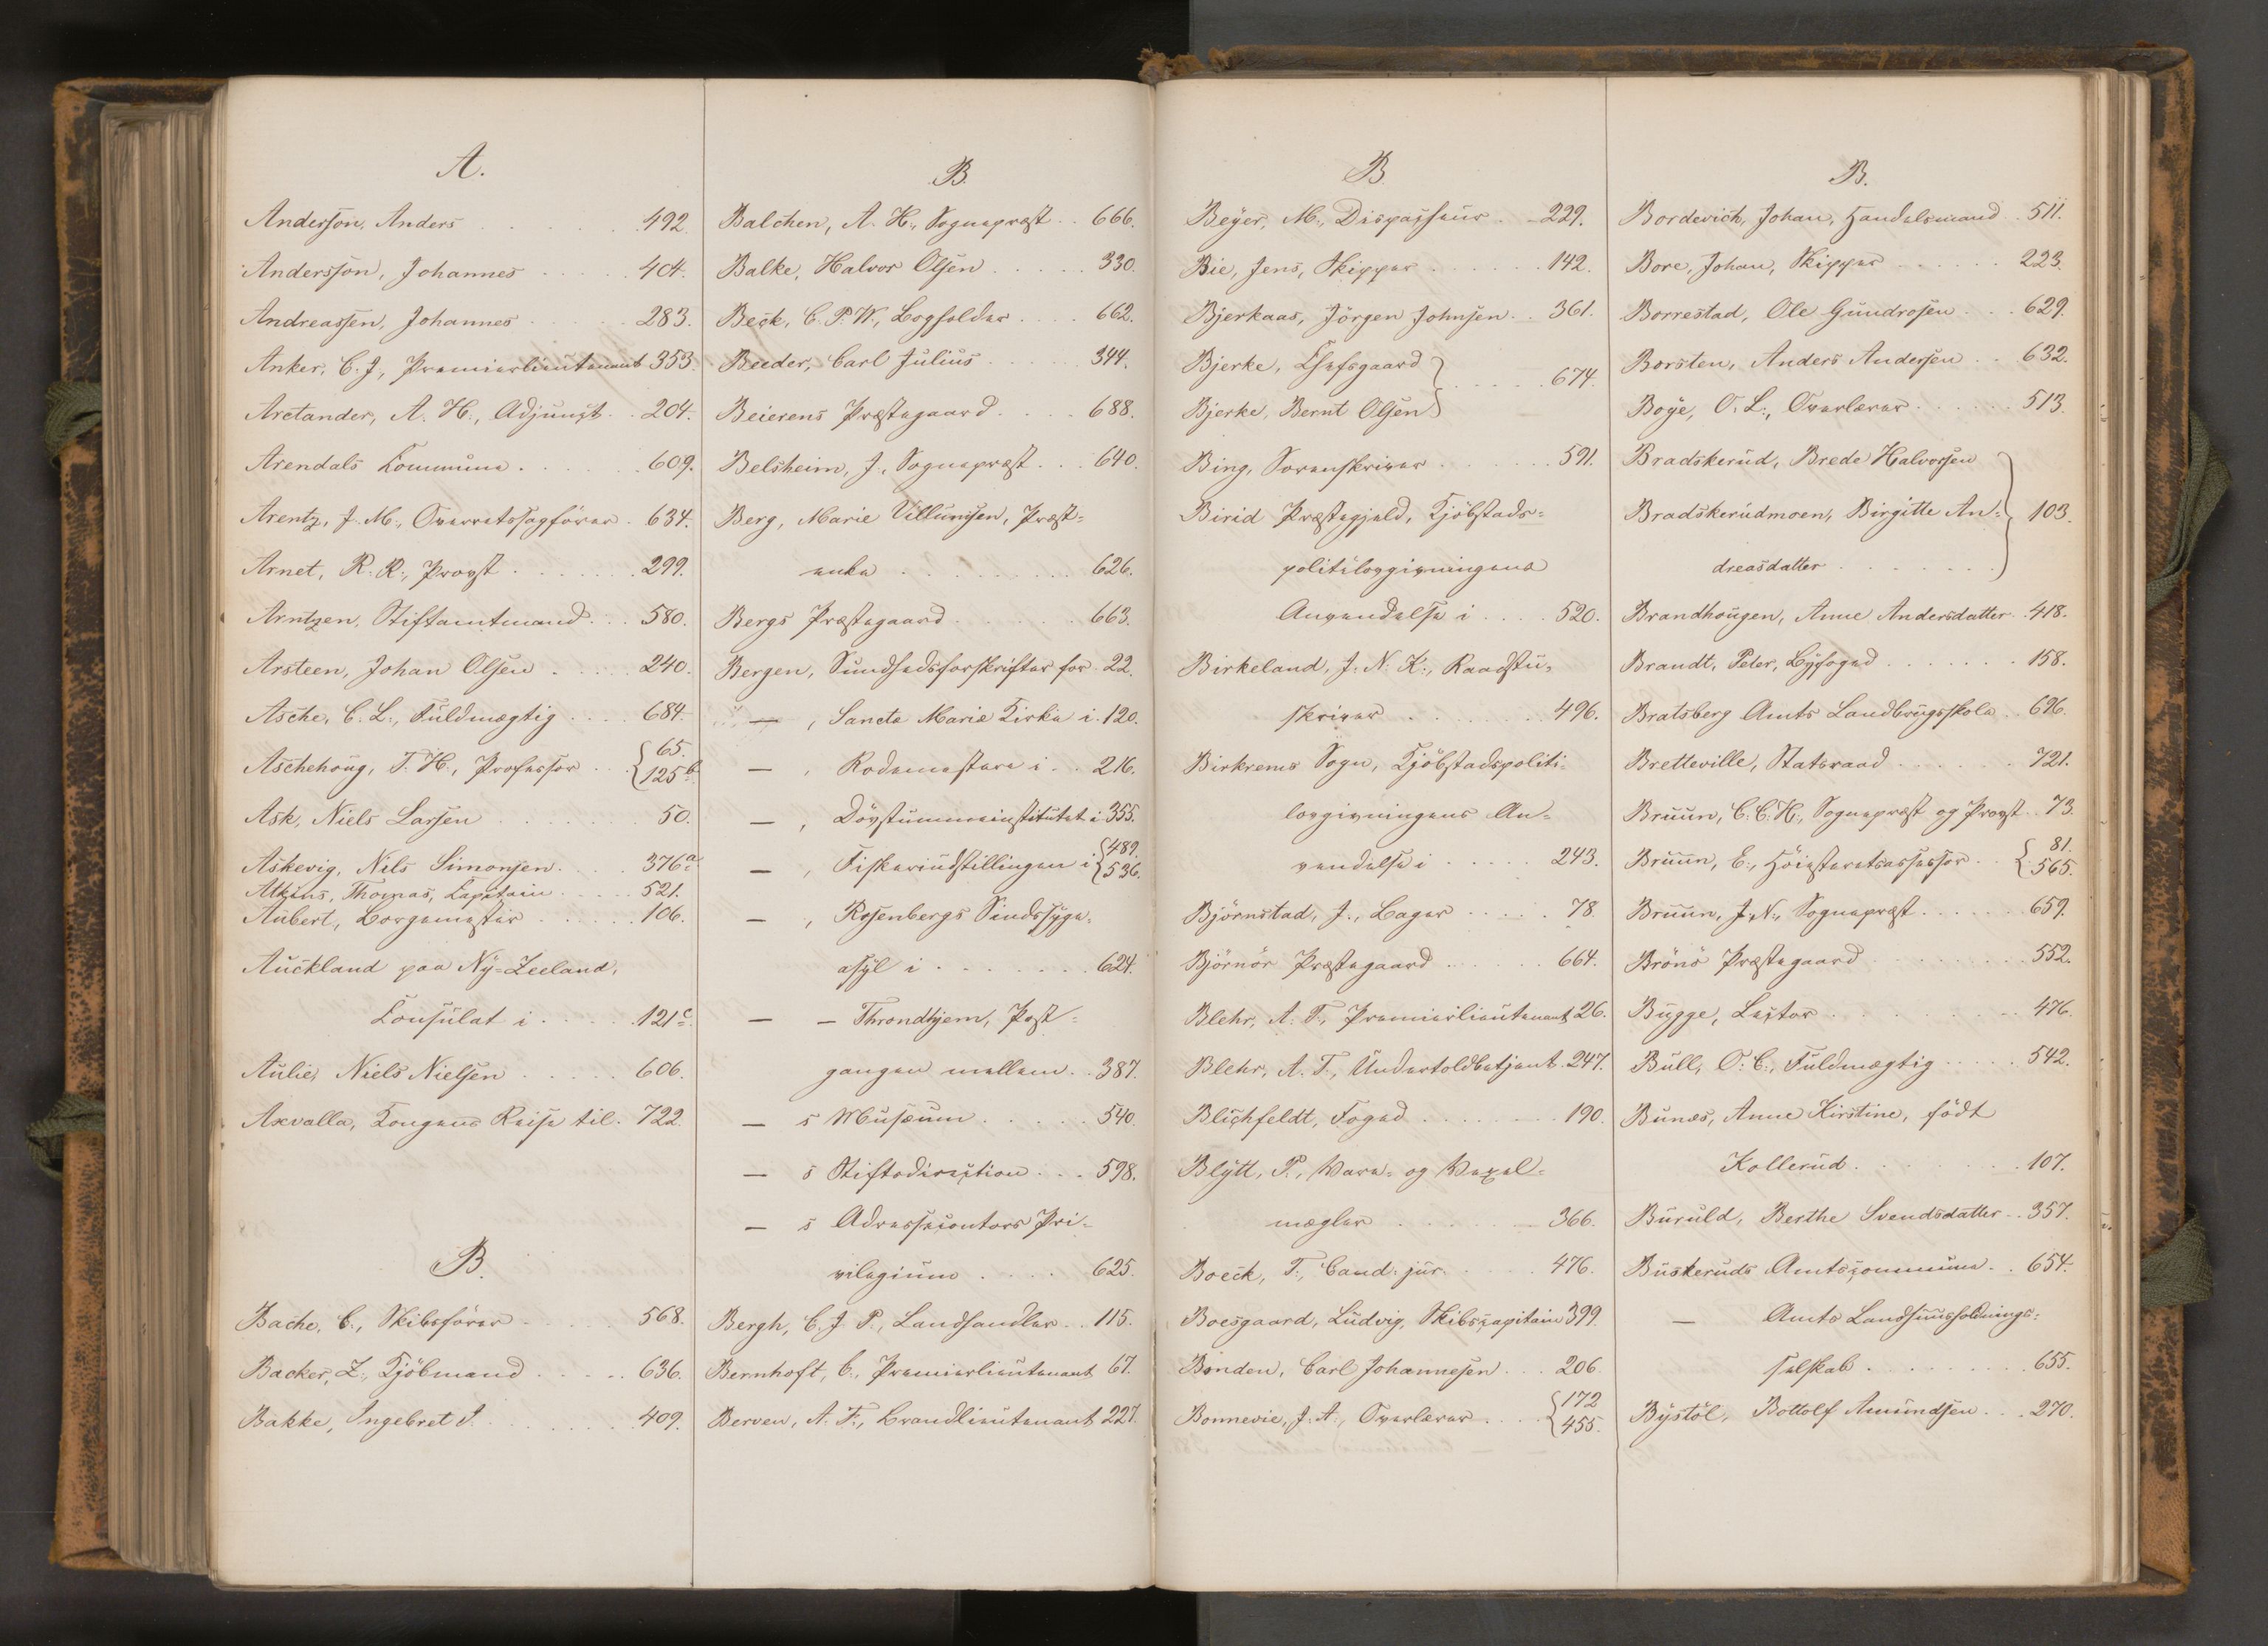 A.
Anderssön, Anders . . . . . . 492.
Anderssön, Johannes . . . . . 404.
Andreassen, Johannes . . . . . 283.
Anker, C. J., Premierlieutenant 353.
Arctander, A. H., Adjunct . . 204.
Arendals Kommune . . . . . 609.
Arentz, J. M., Overretssagfører . 634.
Arnet, R. R., Provst . . . . . . 299.
Arntzen, Stiftamtmand . . . 580.
Arsteen, Johan Olsen . . . . . 240.
Asche, C. L., Fuldmægtig . . . . 684.
Aschehoug, T. H., Professor . . { 65. 125b.
Ask, Niels Larsen . . . . . . 50.
Askevig, Nils Simonsen . . . . 376a.
Atkins, Thomas, Kapitain . . . . 521.
Aubert, Borgemester . . . . . 106.
Auckland paa Ny-Zeeland,
Konsulat i . . . . . 121c.
Aulie, Niels Nielsen . . . . . 606.
Axvalla, Kongens Reise til . 722.
B.
Bache, C., Skibsfører . . . . . 568.
Backer, Z., Kjöbmand . . . . . 636.
Bakke, Ingebret J. . . . . . . 409.
B.
Balchen, A. H., Sognepræst . . 666.
Balke, Halvor Olsen . . . . . 330.
Beck, C. P. W., Bogholder . . . . 662.
Beeder, Carl Julius . . . . . 344.
Beierens Præstegaard . . . . 688.
Belsheim, J., Sognepræst . . . 640.
Berg, Marie Villumsen, Præst-
enke . . . . . . . . 626.
Bergs Præstegaard . . . . . . 663.
Bergen, Sundhedsforskrifter for . 22.
— , Sancte Marie Kirke i . 120.
— , Rodemestere i . . 216.
— , Dövstummeinstitutet i 355.
— , Fiskeriudstillingen i { 489. 536.
— , Rosenbergs Sindssyge-
asyl i . . . . . . . 624.
— — Throndhjem, Post-
gangen mellem . . 387.
— s Musæum . . . . . 540.
— s Stiftsdirection . . . 598.
— s Adressecontors Pri-
vilegium . . . . 625.
Bergh, C. J. P., Landhandler . . 115.
Bernhoft, C., Premierlieutenant 67.
Berven, A. F., Brandlieutenant 227.
B.
Beyer, M., Dispascheur . . 229.
Bie, Jens, Skipper . . . . . . 142.
Bjerkaas, Jörgen Johnsen . . 361.
Bjerke, Chefsgaard
Bjerke, Bernt Olsen } . . . . . 674.
Bing, Sorenskriver . . . . . . 591.
Birid Præstegjeld, Kjöbstads-
politilovgivningens
Anvendelse i . . . . 520.
Birkeland, J. N. K., Raadstu-
skriver . . . . . . 496.
Birkrems Sogn, Kjöbstadspoliti-
lovgivningens An-
vendelse i . . . . . 243.
Björnstad, J., Bager . . . . . 78.
Björnör Præstegaard . . . . . 664.
Blehr, A. T., Premierlieutenant 26.
Blehr, A. T., Undertoldbetjent . 247.
Blichfeldt, Foged . . . . . . . 190.
Blytt, P., Vare- og Vexel-
mægler . . . . . 366.
Boeck, T., Cand. jur. . . . . 476.
Boesgaard, Ludvig, Skibscapitain 399.
Bonden, Carl Johannesen . . . 206.
Bonnevie, J. A., Overlærer . . . { 172 455.
B.
Bordevich, Johan, Handelsmand . 511.
Bore, Johan, Skipper . . . . . . 223.
Borrestad, Ole Gundrosen . . . 629.
Borsten, Anders Andersen . . 632.
Boye, O. L., Overlærer . . . . . . 513.
Bradskerud, Brede Halvorsen
Bradskerudmoen, Birgitte An- } 103.
dreasdatter . . . . . . .
Brandhougen, Anne Andersdatter . . 418.
Brandt, Peter, Byfoged . . . . . . . 158.
Bratsberg Amts Landbrugsskole . . 696.
Bretteville, Statsraad . . . . . . 721.
Bruun, C. C. H., Sognepræst og Provst . . 73.
Bruun, E., Höiesteretsassessor . . { 81. 565.
Bruun, J. N., Sognepræst . . . . . . 659.
Brönö Præstegaard . . . . . . . . 552.
Bugge, Lector . . . . . . . . . 476.
Bull, O. C., Fuldmægtig . . . . . 542.
Bunæs, Anne Kirstine, födt
Kollerud . . . . . . . 107.
Buruld, Berthe Svendsdatter . . 357.
Buskeruds Amtscommune . . 654.
— Amts Landhuusholdnings-
selskab . . . . . . . . 655.
Bystöl, Bottolf Amundsen . . . 270.